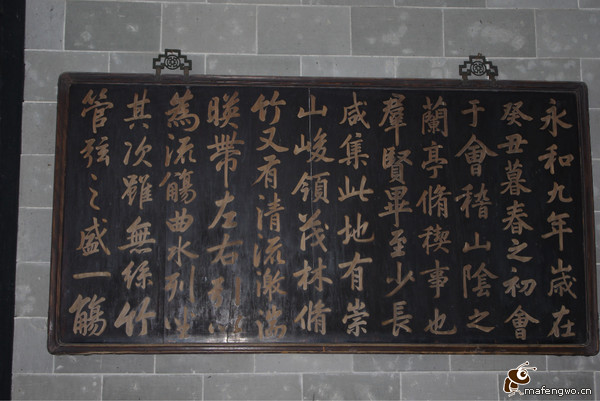 永和九年歲在
癸丑暮春之初會
于會稽山陰之
蘭亭脩稧事也
羣賢畢至少長
咸集此地有崇
山峻領茂林脩
竹又有清流激湍
暎帶左右引以
為流觴曲水列坐
其次雖無絲竹
管弦之盛一觴
mafengwo.cn